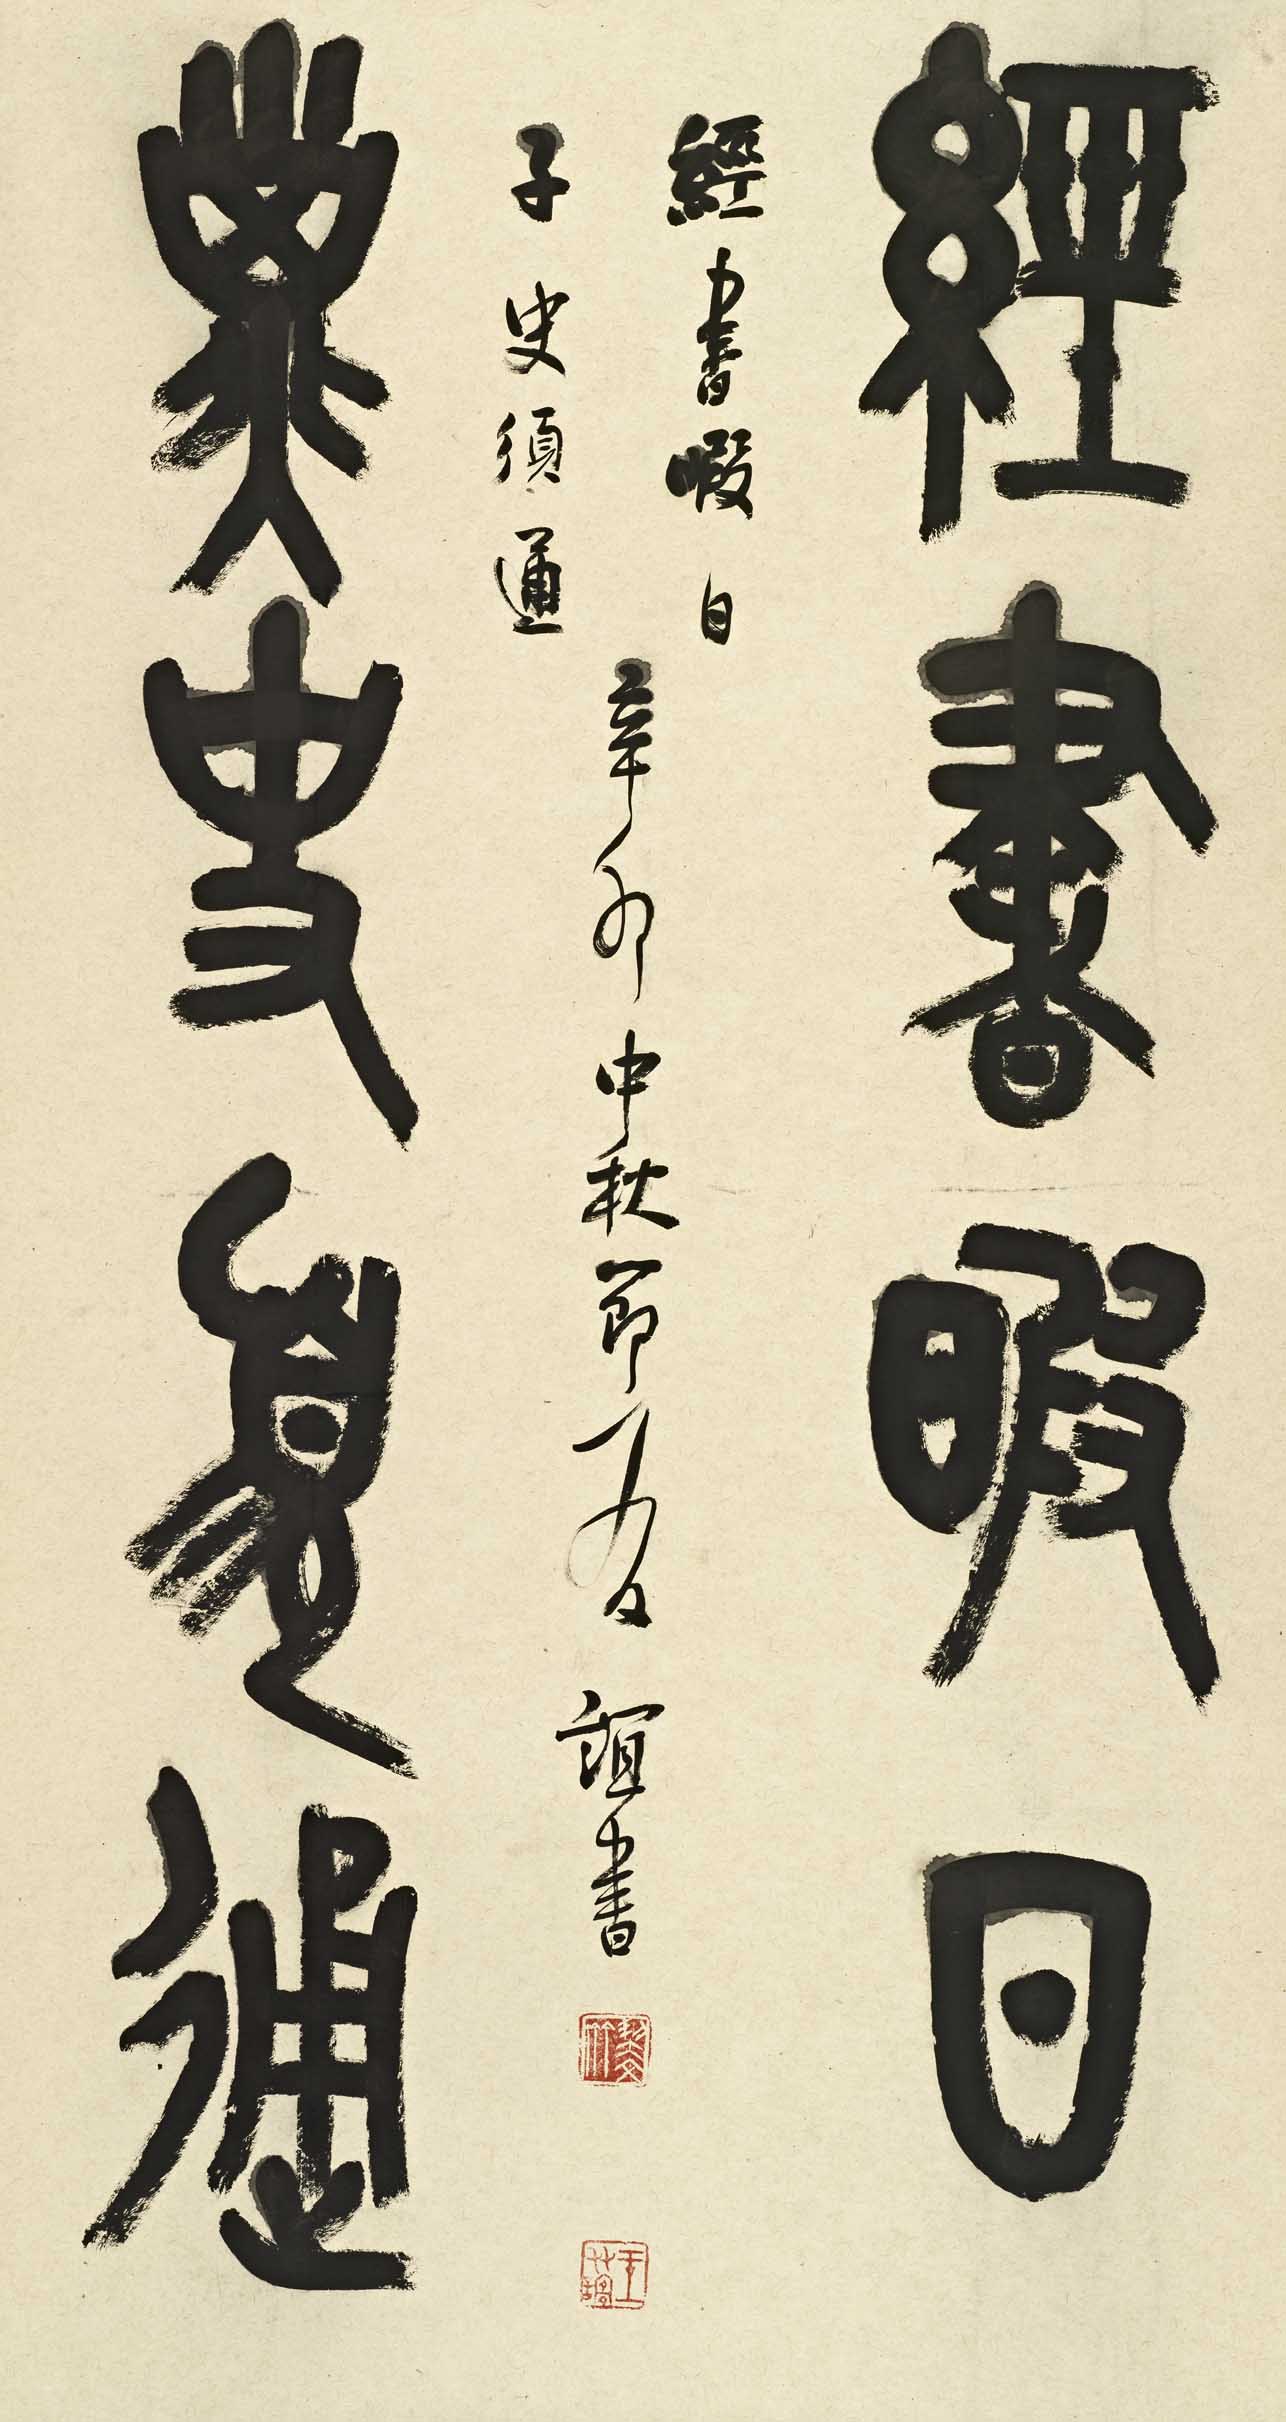 經書暇日
子史須通
經書暇日
子史須通
辛卯中秋節
誼書